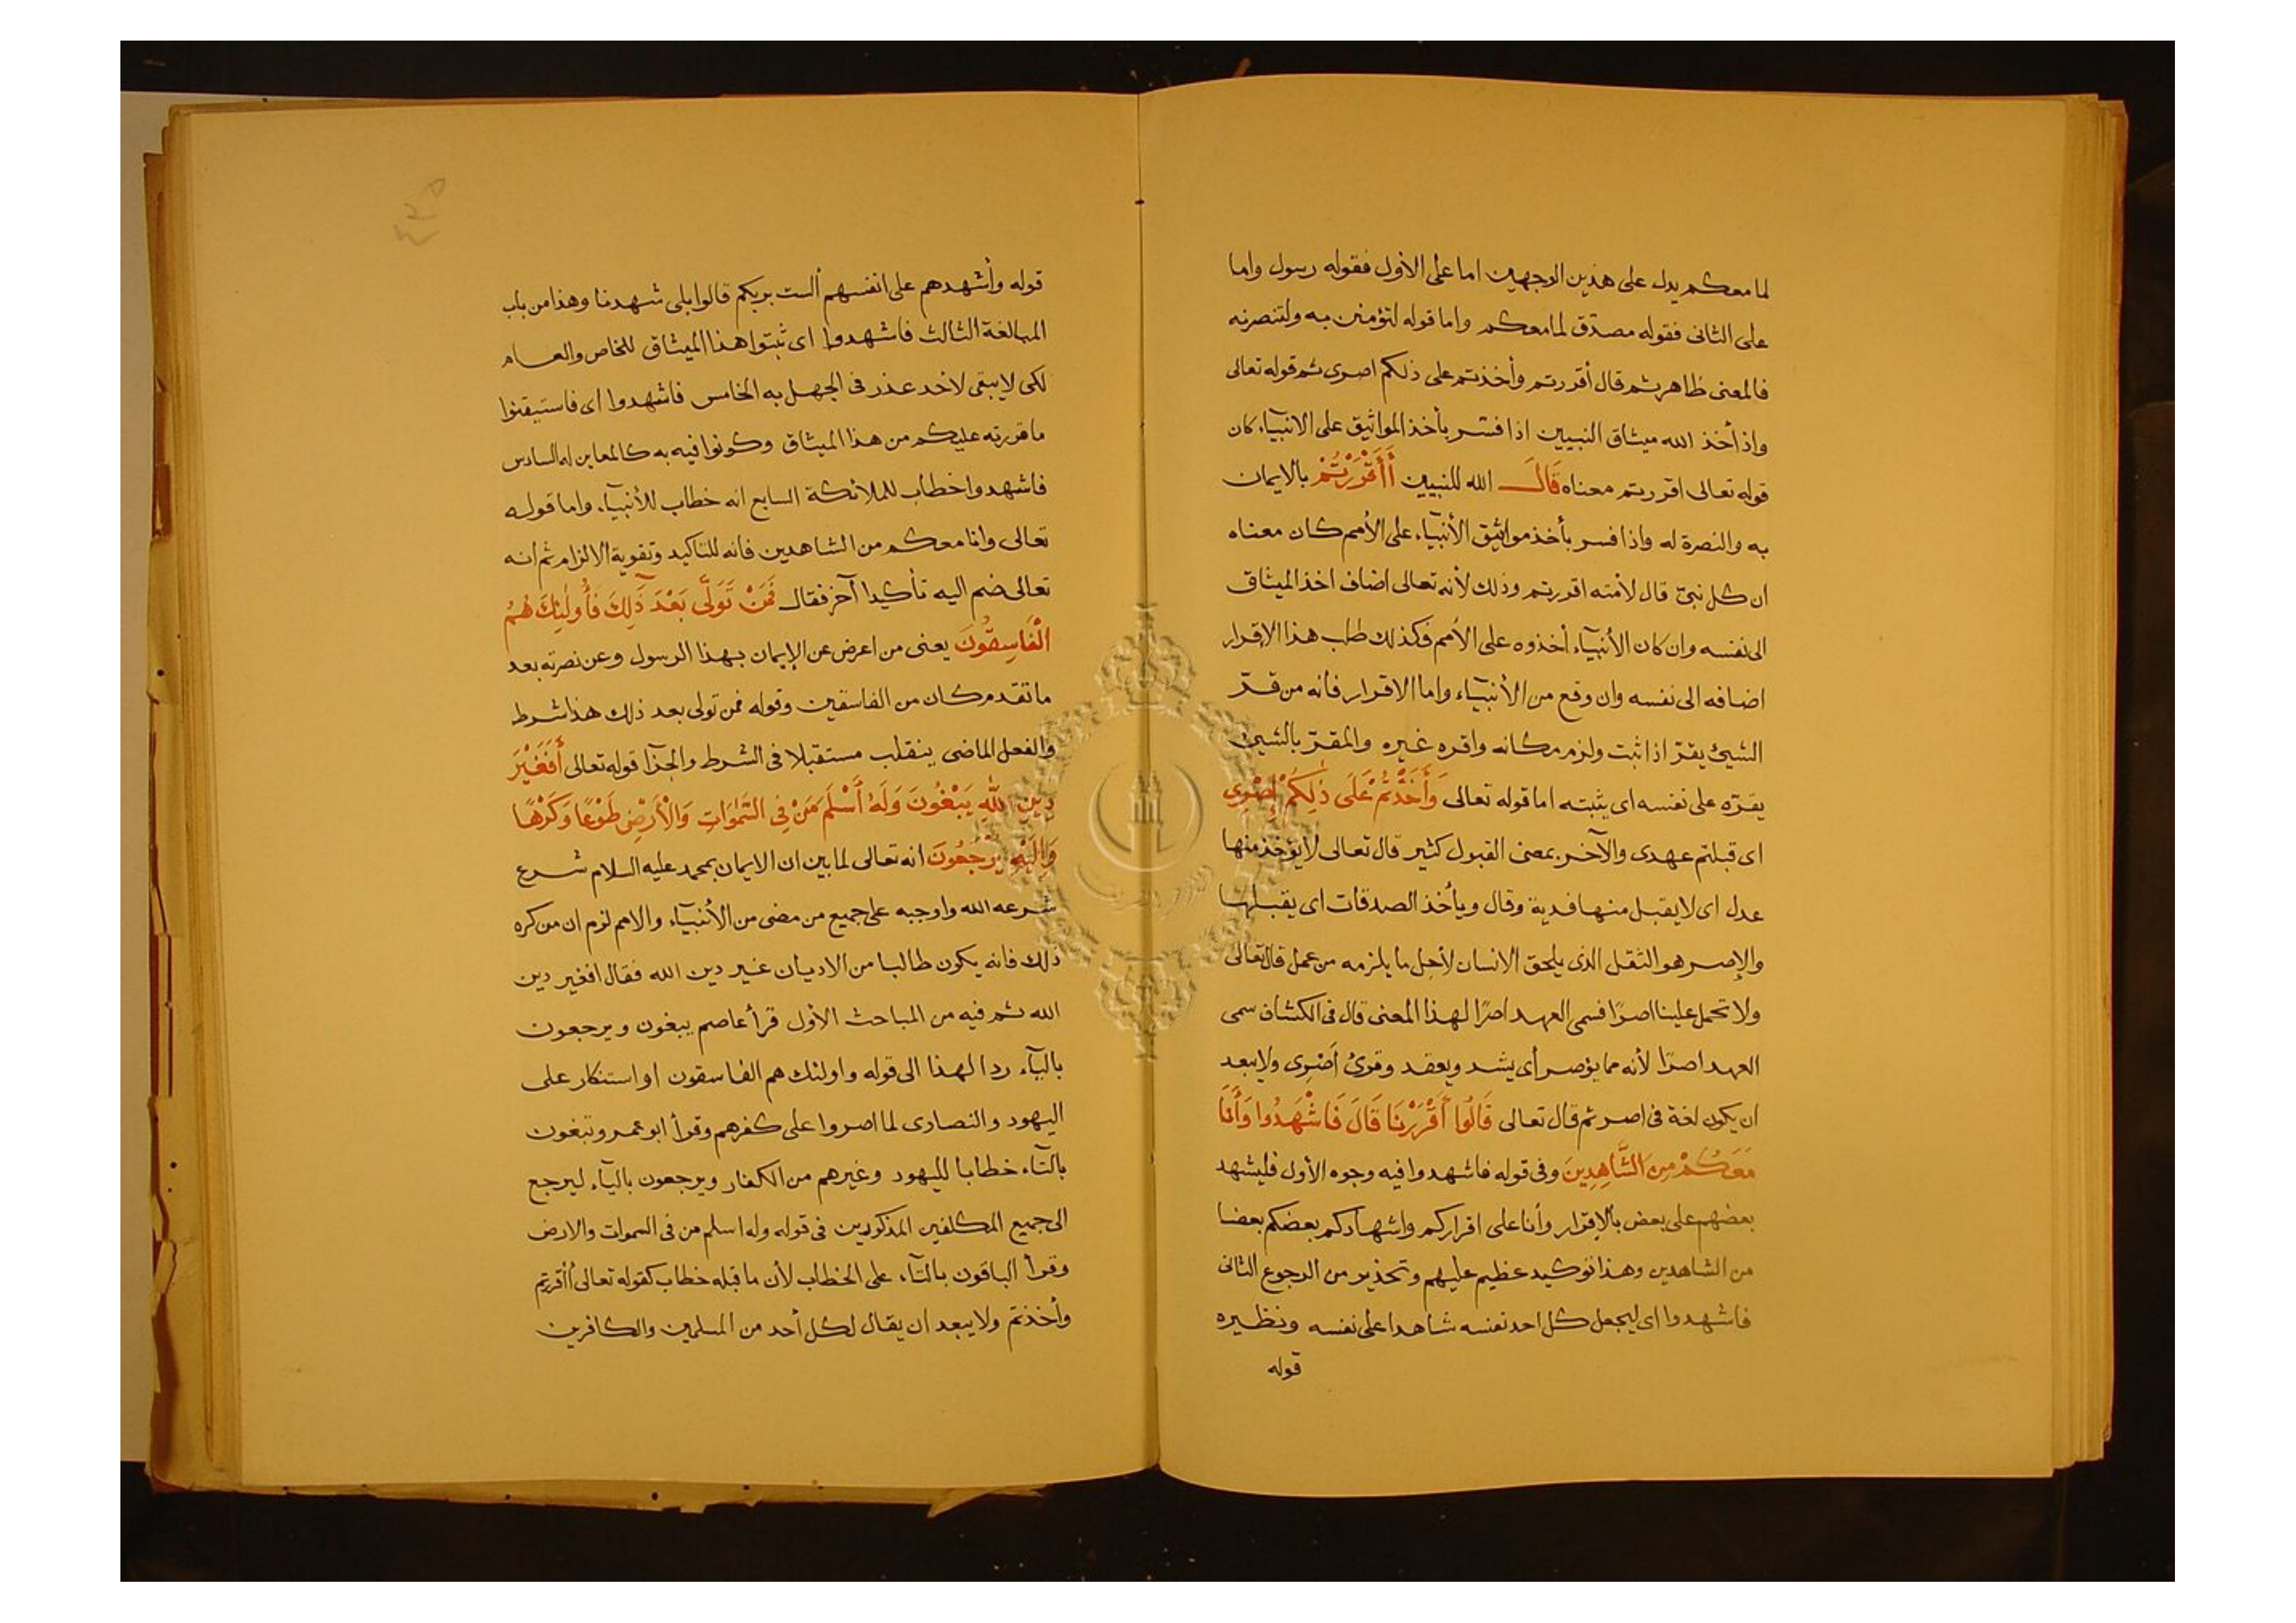 لما معكم يدل على هذين الوجهين اما على الأول فقوله رسول واما
على الثانى فقوله مصدّق لما معكم واما قوله لتؤمنن به ولتنصرنه
فالمعنى ظاهر ثم قال أقررتم وأخذتم على ذلكم اصرى ثم قوله تعالى
واذ أخذ الله ميثاق النبيين اذا فسّر بأخذ المواثيق على الانبيآء كان
قوله تعالى اقررتم معناه قَالَ الله للنبيين أَأَقْرَرْتُمْ بالايمان
به والنصرة له واذا فسر بأخذ مواثيق الأنبيآء على الأمم كان معناه
ان كل نبىّ قال لأمته اقررتم وذلك لأنه تعالى اضاف اخذ الميثاق
الى نفسه وان كان الأنبيآء أخذوه على الأمم فكذلك طلب هذا الإقرار
اضافه الى نفسه وان وقع من الأنبيآء واما الاقرار فانه من قرّ
الشيئ يقرّ اذا ثبت ولزم مكانه واقره غيره والمقرّ بالشيئ
يقرّه على نفسه اى يثبته اما قوله تعالى وَأَخَذْتُمْ عَلَى ذٰلِكُمْ إِصْرِي
اى قبلتم عهدى والآخر بمعنى القبول كثير قال تعالى لا يؤخذ منها
عدل اى لا يقبل منها فدية وقال ويأخذ الصدقات اى يقبلها
والإصر هو الثقل الذى يلحق الانسان لأجل ما يلزمه من عمل قال تعالى
ولا تحمل علينا اصرًا فسمى العهد اصرًا لهذا المعنى قال فى الكشاف سمى
العهد اصرًا لأنه مما يؤصر أى يشد ويعقد وقرئ أصرى ولا يبعد
ان يكون لغة فى اصر ثم قال تعالى قَالُوا أَقْرَرْنَا قَالَ فَاشْهَدُوا وَأَنَا
مَعَكُمْ مِنَ الشَّاهِدِينَ وفى قوله فاشهدوا فيه وجوه الأول فليشهد
بعضهم على بعض بالإقرار وأنا على اقراركم واشهادكم بعضكم بعضا
من الشاهدين وهذا توكيد عظيم عليهم وتحذير من الرجوع الثانى
فاشهدوا اى ليجعل كل احد نفسه شاهدا على نفسه ونظيره
قوله
قوله وأشهدهم على انفسهم ألست بربكم قالوا بلى شهدنا وهذا من باب
المبالغة الثالث فاشهدوا اى ثبتوا هذا الميثاق للخاص والعام
لكى لا يبقى لاحد عذر فى الجهل به الخامس فاشهدوا اى فاستيقنوا
ما قررته عليكم من هذا الميثاق وكونوا فيه به كالمعاين له السادس
فاشهدوا خطاب للملائكة السابع انه خطاب للأنبيآء واما قوله
تعالى وانا معكم من الشاهدين فانه للتاكيد وتقوية الالزام ثم انه
تعالى ضم اليه تأكيدا آخر فقال فَمَنْ تَوَلَّى بَعْدَ ذَلِكَ فَأُولٰئِكَ هُمُ
الْفَاسِقُونَ يعنى من اعرض عن الإيمان بهذا الرسول وعن نصرته بعد
ما تقدم كان من الفاسقين وقوله فمن تولى بعد ذلك هذا شرط
والفعل الماضى ينقلب مستقبلا فى الشرط والجزآ قوله تعالى أَفَغَيْرَ
دِينِ اللهِ يَبْغُونَ وَلَهُ أَسْلَمَ مَنْ فِي السَّمٰوَاتِ وَالْأَرْضِ طَوْعًا وَكَرْهًا
وَإِلَيْهِ يُرْجَعُونَ انه تعالى لما بين ان الايمان بمحمد عليه السلام شرع
شرعه الله واوجبه على جميع من مضى من الأنبيآء والامم لزم ان من كره
ذلك فانه يكون طالبا من الاديان غير دين الله فقال افغير دين
الله ثم فيه من المباحث الأول قرأ عاصم يبغون ويرجعون
باليآء ردا لهذا الى قوله واولئك هم الفاسقون او استنكار على
اليهود والنصارى لما اصروا على كفرهم وقرأ ابو عمرو تبغون
بالتآء خطابا لليهود وغيرهم من الكفار ويرجعون باليآء ليرجع
الى جميع المكلفين المذكورين فى قوله وله اسلم من فى السموات والارض
وقرأ الباقون بالتآء على الخطاب لأن ما قبله خطاب كقوله تعالى أأقررتم
وأخذتم ولا يبعد ان يقال لكل أحد من المسلمين والكافرين